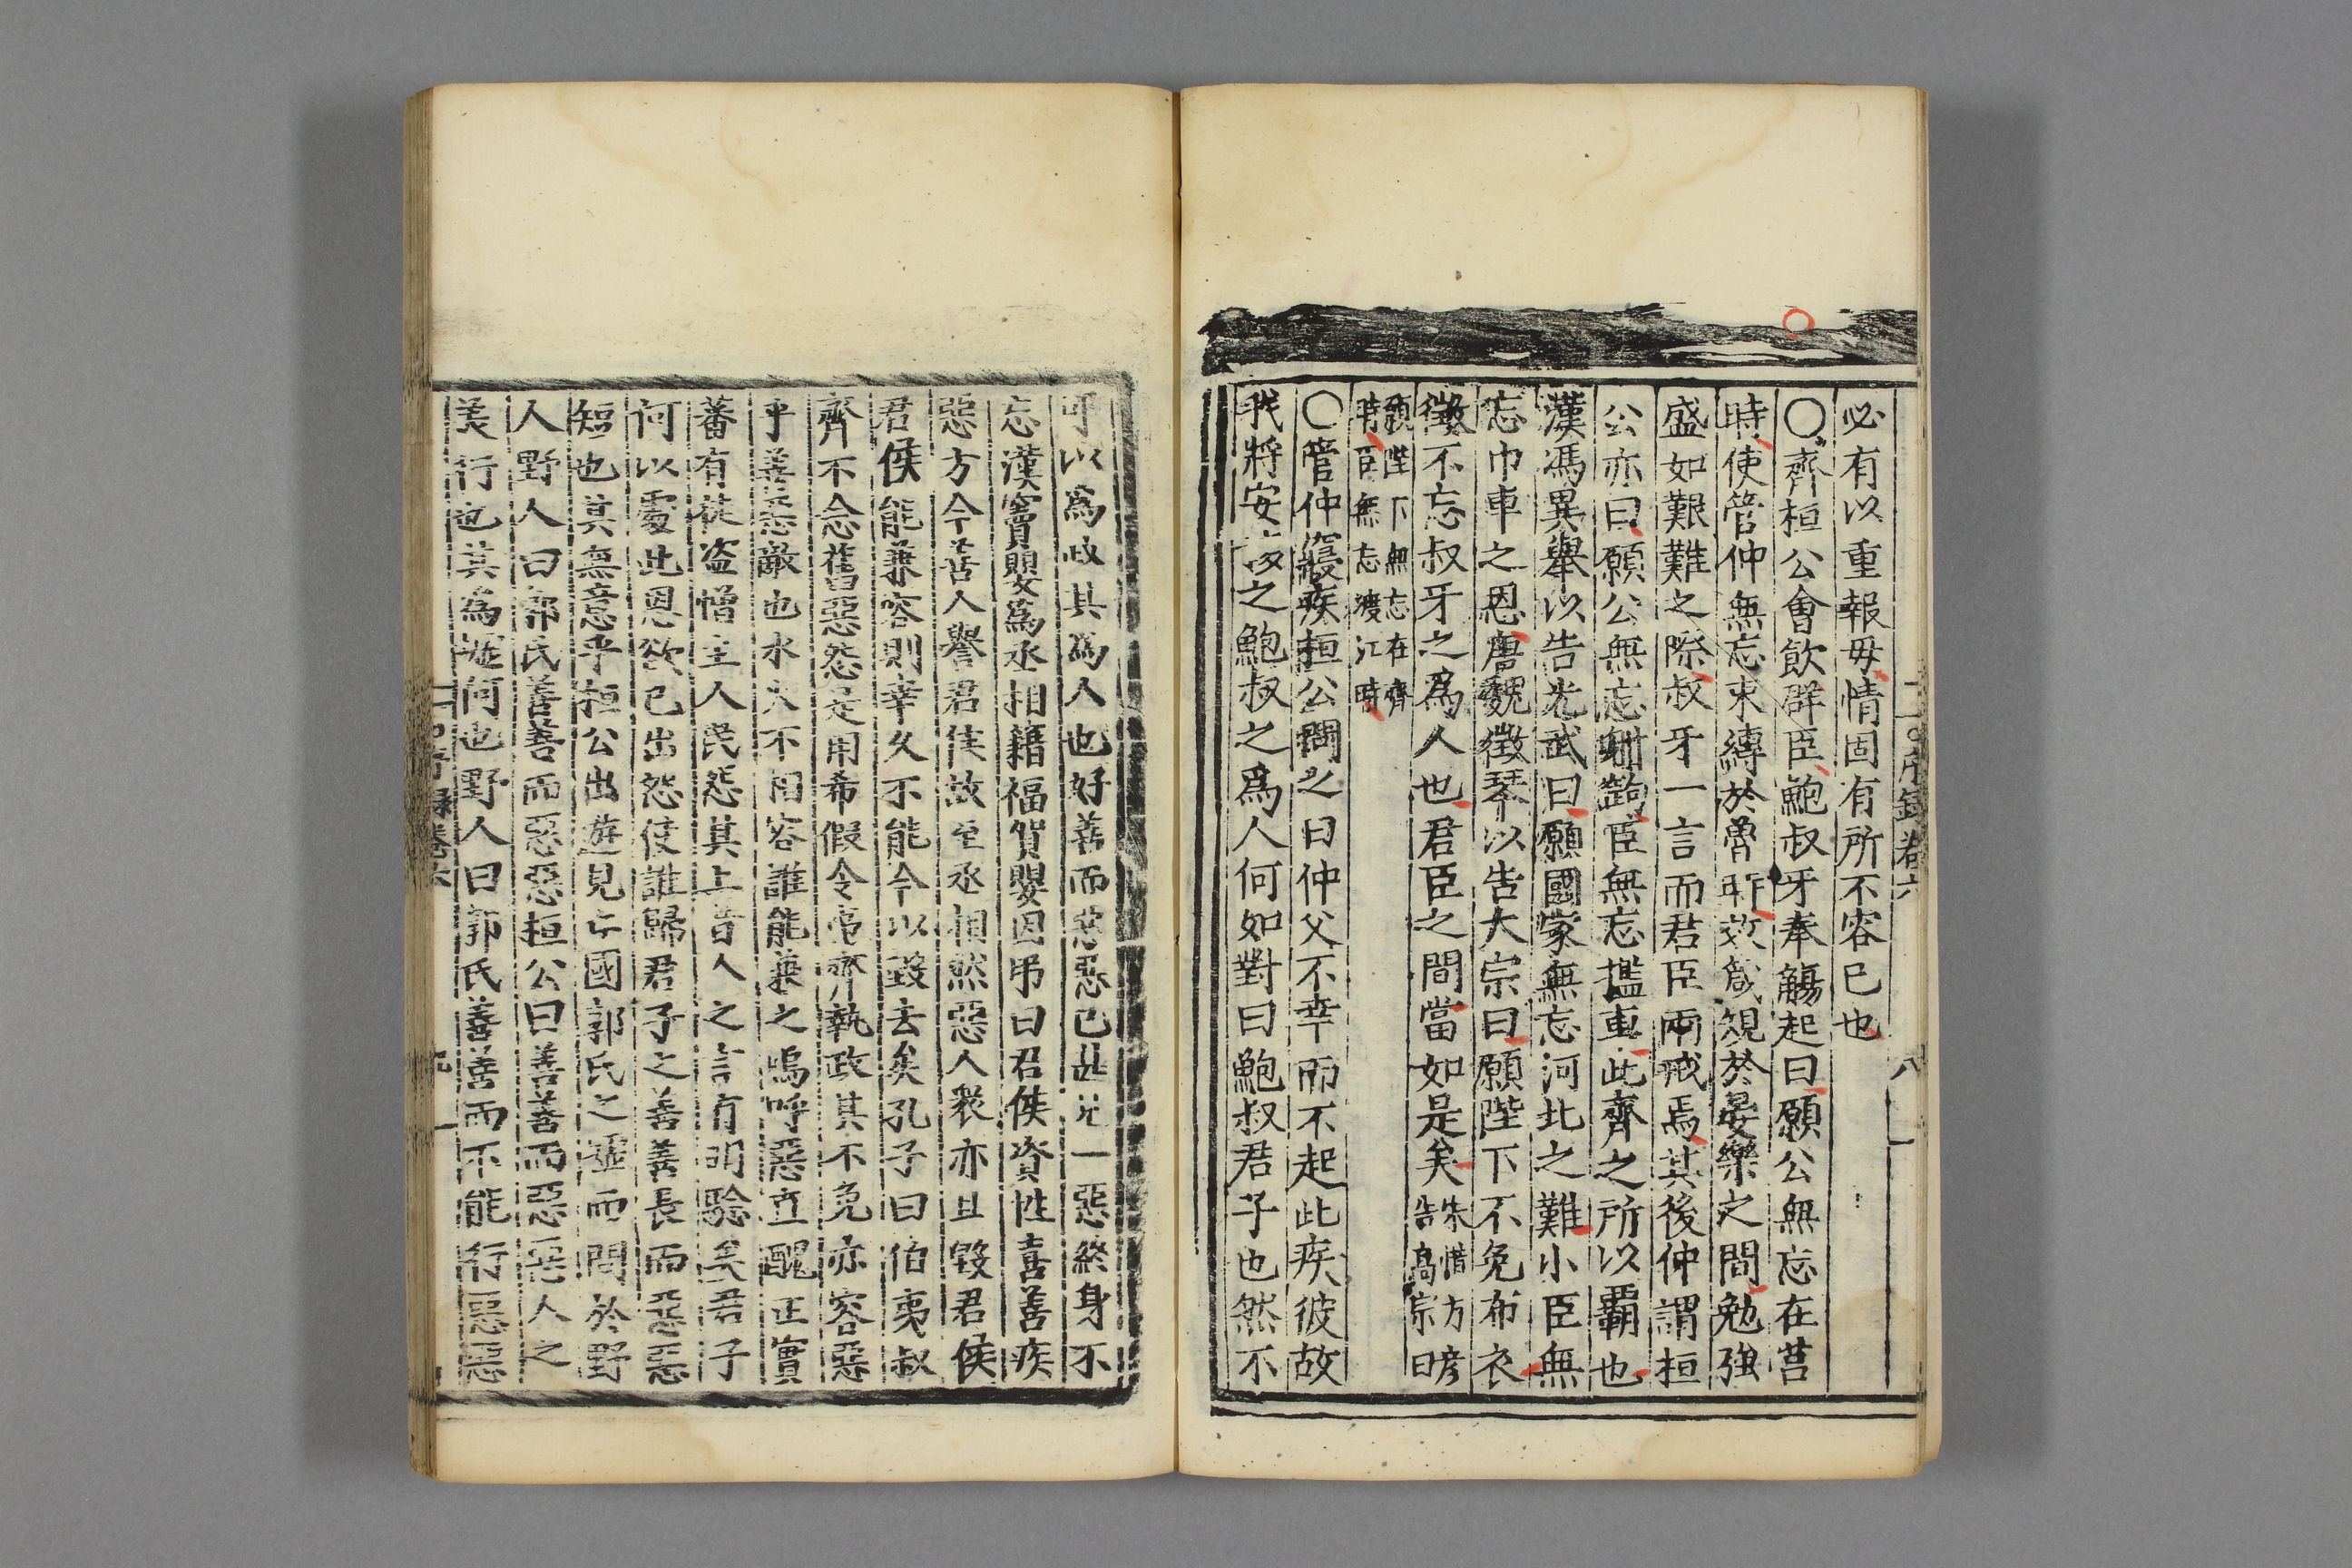 必有以重報毋情固有所不容已也
〇齊桓公會飮群臣鮑叔牙奉觴起曰願公無忘在莒
時使管仲無忘束縛於魯時效箴規於晏樂之間勉强
盛如艱難之際叔牙一言而君臣兩戒焉其後仲謂桓
公亦曰願公無忘射鉤臣無忘檻車此齊之所以霸也
漢馮異舉以告光武曰願國家無忘河北之難小臣無
忘巾車之恩唐魏徵琴以告大宗曰願陛下不免布衣
徵不忘叔牙之爲人也君臣之間當如是矣朱惜方彦告高宗曰
願陛下無忘在齊時臣無忘渡江時
〇管仲寢疾桓公問之曰仲父不幸而不起此疾彼故
我將安之鮑叔之爲人何如對曰鮑叔君子也然不
可以爲政其爲人也好善而惡惡已甚見一惡終身不
忘漢竇嬰爲丞相籍福賀嬰因吊曰君侯資性喜善疾
惡方今善人譽君侯故至丞相然惡人衆亦且毀君侯
君侯能兼容則幸久不能今以毀去矣孔子曰伯夷叔
齊不念舊惡怨是用希假令夷齊執政其不免亦容惡
乎善惡敵也水火不相容誰能兼之嗚呼惡直醜正實
蕃有徒盜憎主人民怨其上昔人之言有明驗矣君子
何以處此恩欲己出怨使誰歸君子之善善長而惡惡
短也其無意乎桓公出遊見亡國郭氏之墟而問於野
人野人曰郭氏善善而惡惡桓公曰善善而惡惡人之
美行也其爲墟何也野人曰郭氏善善而不能行惡惡
卷六
八